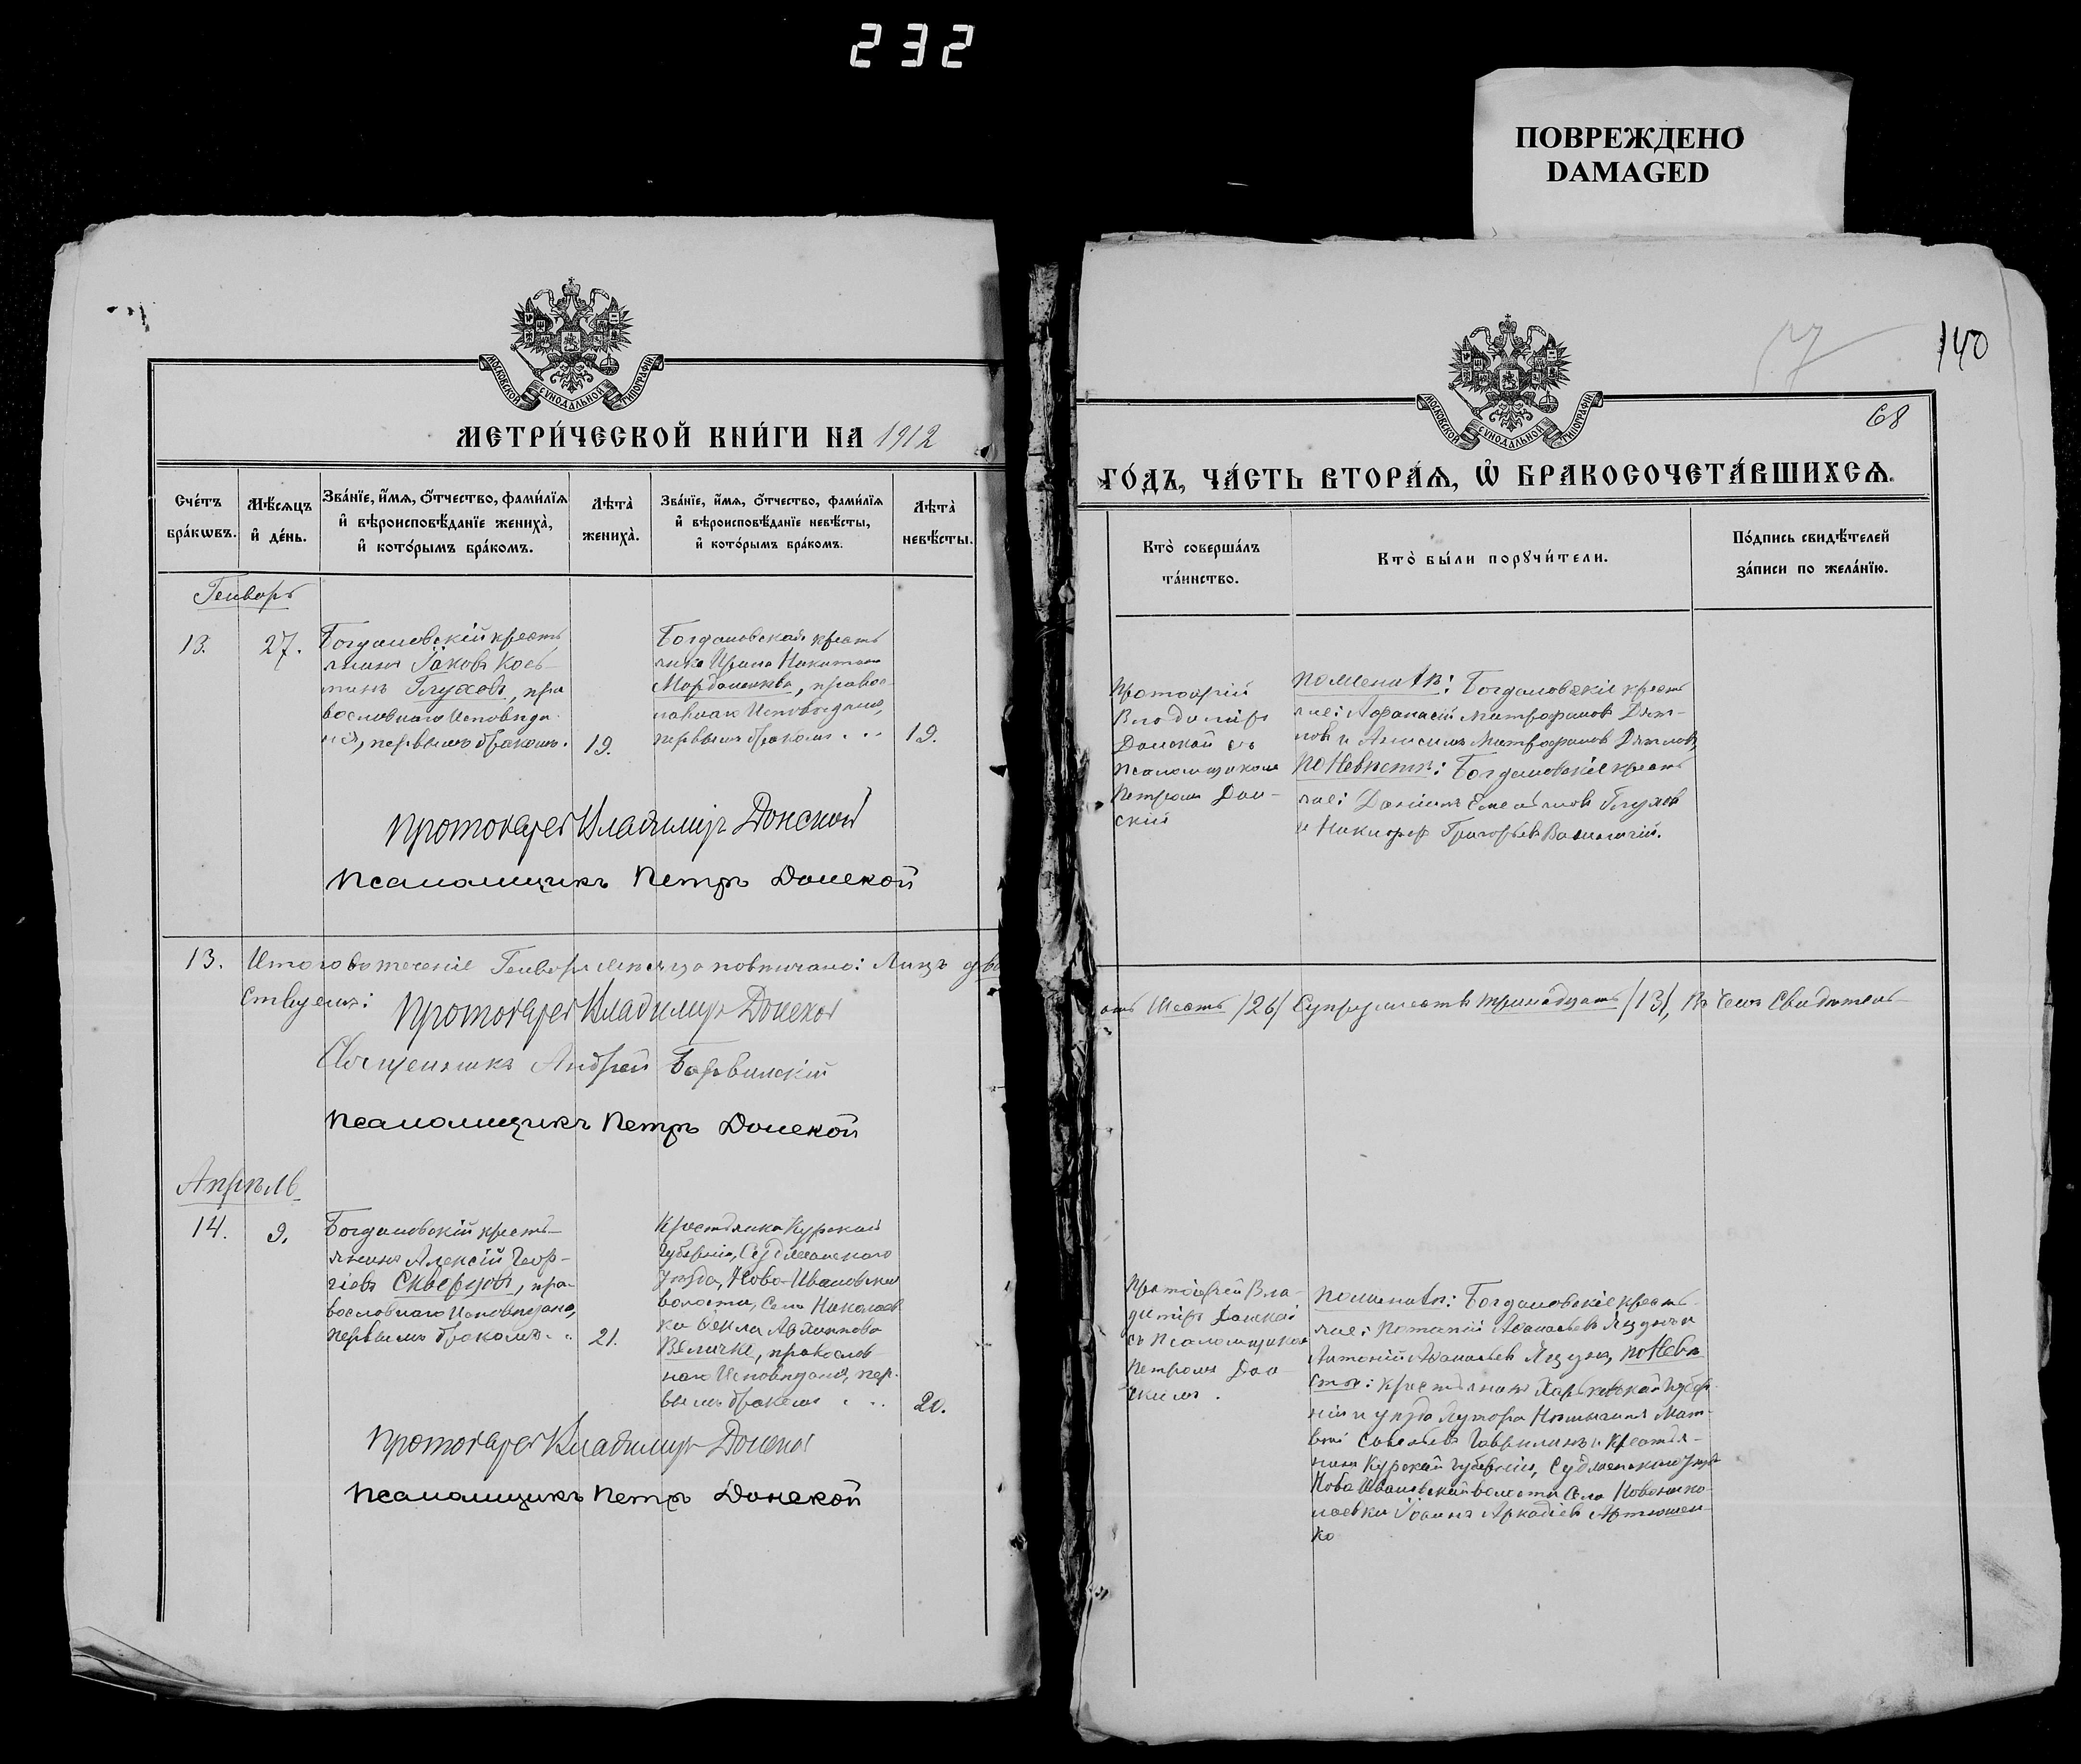 232
ПОВРЕЖДЕНО
DAMAGED
МОСКОВСКОЙ СѴНОДАЛЬНОЙ ТИПОГРАФІИ
МЕТРИ́ЧЕСКОЙ КНИ́ГИ НА 1912
Сче́тъ бра́кѡвъ.
Мѣ́сяцъ и҆ де́нь.
Зва́нїе, и҆́мя, ѻ҆́тчество, фами́лїя
и҆ вѣроисповѣ́данїе жениха̀,
и҆ кото́рымъ бра́комъ.
Лѣта̀ жениха̀.
Зва́нїе, и҆́мя, ѻ҆́тчество, фами́лїя
и҆ вѣроисповѣ́данїе невѣ́сты,
и҆ кото́рымъ бра́комъ.
Лѣта̀ невѣ́сты.
Генварь
13.
27.
Богдановскій кресть
янинъ Іаковъ Кось
минъ Глуховъ, пра
вославнаго Исповѣда
нія, первымъ бракомъ.
19.
Богдановская кресть
янка Ирина Никитина
православнаго Исповѣданія,
первымъ бракомъ . . .
19.
Протоіерей Владимиръ Донской
Псаломщикъ Петръ Донской
13. Итого во теченіе Генваря мѣсяца повѣнчано: Лицъ два
ствуемъ:
Протоіерей Владимиръ Донской
Священникъ Андрей
Псаломщикъ Петръ Донской
Апрѣль
14.
9.
Богдановскій кресть-
янинъ Алексій Геор-
гіевъ Скверцовъ, пра-
вославнаго Исповѣданія,
первымъ бракомъ . .
21.
Крестьянка Курской
Губерніи, Суджанскаго
Уѣзда, Ново-Ивановской
волости, Села Николаев
ка Ѳекла Архиппова
Величко, православ
наго Исповѣданія, пер-
вымъ бракомъ . . .
20.
Протоіерей Владимиръ Донской
Псаломщикъ Петръ Донской
140
68
МОСКОВСКОЙ СѴНОДАЛЬНОЙ ТИПОГРАФІИ
ГО́ДЪ, ЧА́СТЬ ВТОРА́Я, Ѡ҆ БРАКОСОЧЕТА́ВШИХСЯ.
Кто̀ соверша́лъ
та́инство.
Кто̀ бы́ли порꙋчи́тели.
По́дпись свидѣ́телей
за́писи по жела́нїю.
Протоіерей
Владимиръ
Донской съ
Псаломщикомъ
Петромъ Дон-
скій
По женихѣ: Богдановскіе кресть
яне: Афанасій Митрофановъ Дят-
ловъ и Анисимъ Митрофановъ Дятловъ,
По Невѣстѣ: Богдановскіе кресть
яне: Даніилъ Емельяновъ Глуховъ
и Никифоръ Григорьевъ
ать Шесть /26/ Супружествъ тринадцать /13/, Въ чемъ Свидѣтель-
Протоіерей Вла-
диміръ Донской
съ Псаломщикомъ
Петромъ Дон
скимъ.
По женихѣ: Богдановскіе кресть-
яне: Потапій Аѳанасьевъ Яцунъ и
Антоній Аѳанасьевъ Яцунъ, по Невѣ
стѣ: крестьянинъ Харьковской Губер
ніи и уѣзда Хутора Мат-
вѣй Савельевъ Гаврилинъ и крестья-
нинъ Курской Губерніи, Суджанскаго Уѣзда
Ново Ивановской волости Села Новонико
лаевки Іоаннъ Аркадіевъ Артюшен
ко